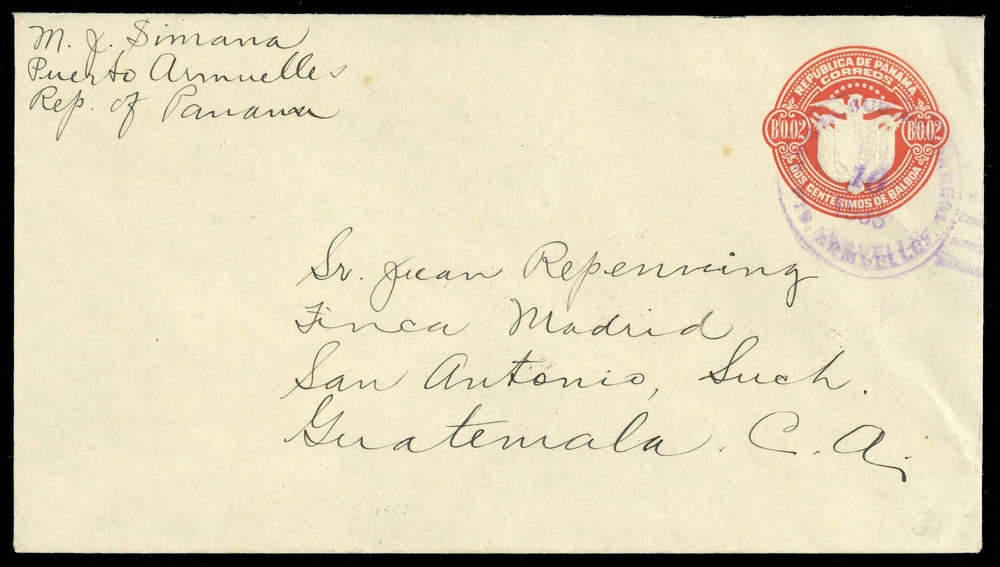 M. J. Simana
Puerto Armuelles
Rep. of Panama
REPUBLICA DE PANAMA
CORREOS
B0.02 B0.02
DOS CENTESIMOS DE BALBOA
14
ARMUELLES
Sr. Juan Repenning
Finca Madrid
San Antonio, Such.
Guatemala. C. A.